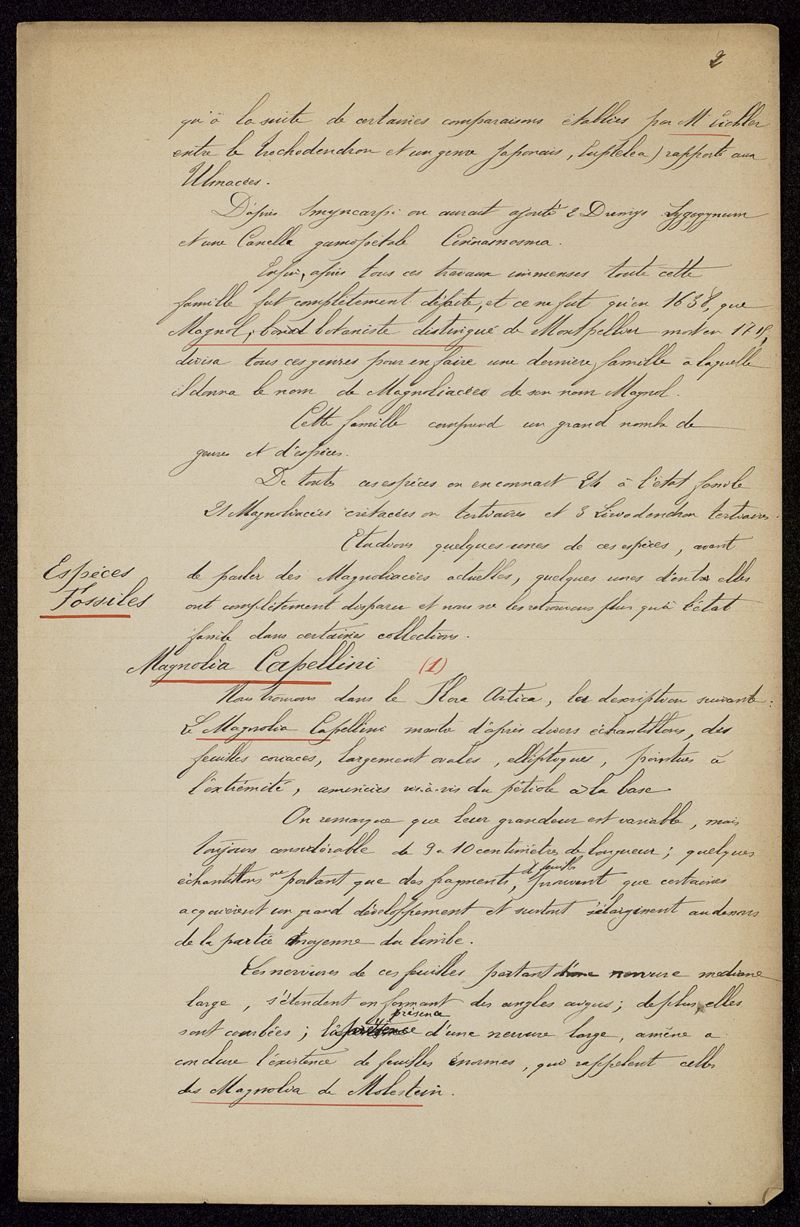 2
qu'à la suite de certaines comparaisons établies par M. Eichler
entre le Trochodendron et un genre Japonais, Euptelea) rapporté aux
Ulmacées.
D'après on aurait ajouté 2 Drimys Zygogynum
et une Canella gamopétale Cinnamosma.
Enfin, après tous ces travaux immenses toute cette
famille fut complètement défaite, et ce ne fut qu'en 1638, que
Magnol, botaniste distingué de Montpellier mort en 1715,
divisa tous ces genres pour en faire une dernière famille à laquelle
il donna le nom de Magnoliacées de son nom Magnol.
Cette famille comprend un grand nombre de
genres et d'espèces.
De toutes ces espèces on en connait 24 à l'état fossile
21 Magnoliacées crétacées ou tertiaires et 3 Liriodendron tertiaires.
Etudions quelques unes de ces espèces, avant
Espéces
Fossiles
de parler des Magnoliacées actuelles, quelques unes d'entre elles
ont complètement disparu et nous ne les retrouvons plus qu'à l'état
fossile dans certaines collections.
Magnolia Capellini (1)
Nous trouvons dans le Flora Artica, la description suivante:
Le Magnolia Capellini montre d'après divers échantillons, des
feuilles coriaces, largement ovales, elliptiques, pointues à
l'extrémité, amincies vis-à-vis du pétiole à la base
On remarque que leur grandeur est variable, mais
toujours considérable de 9 à 10 centimètres de longueur; quelques
échantillons ne portant que des fragments, de feuilles prouvent que certaines
acquéraient un grand développement et surtout s'élargissent au dessus
de la partie moyenne du limbe.
Les nervures de ces feuilles partant d'une nervure mediane
large, s'étendent en formant des angles aigus; de plus elles
sont courbées; la présence d'une nervure large, amène a
conclure l'éxistence de feuilles énormes, qui rappelent celles
des Magnolia de Moletein.